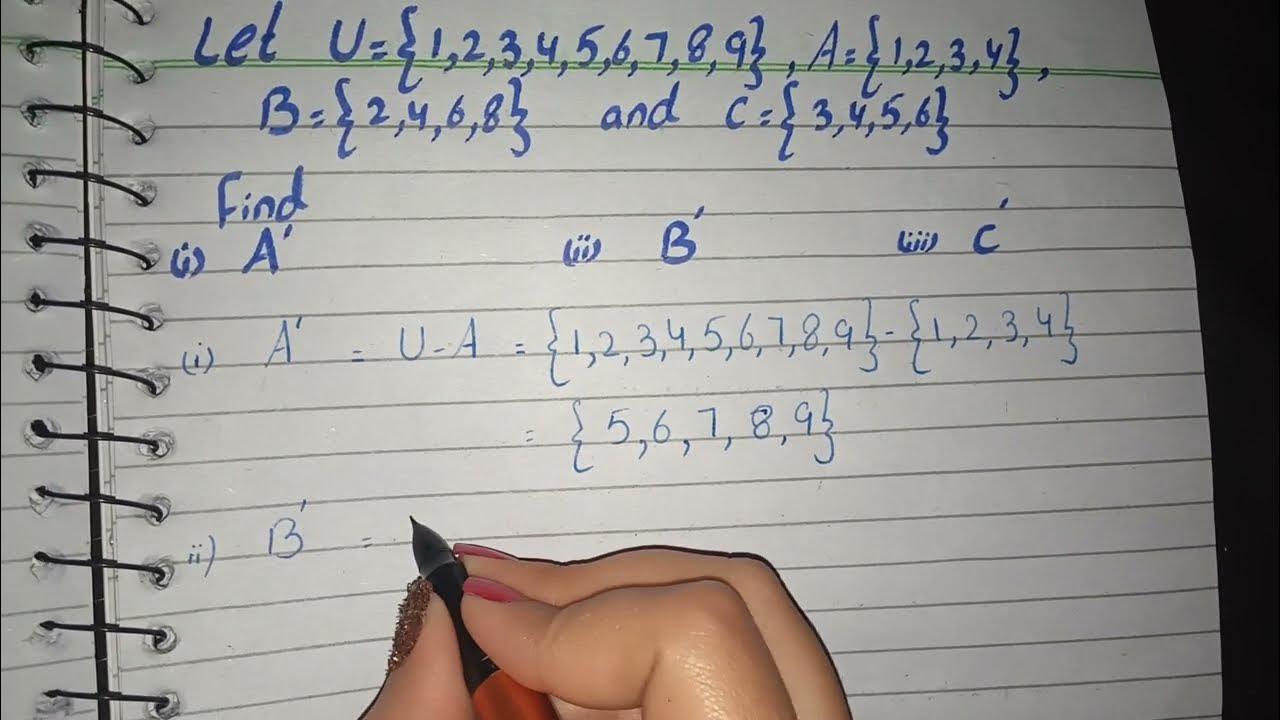 Let U={1,2,3,4,5,6,7,8,9}, A={1,2,3,4},
B={2,4,6,8} and C={3,4,5,6}
Find
(i) A' (ii) B' (iii) C'
(i) A' = U-A = {1,2,3,4,5,6,7,8,9}-{1,2,3,4}
= {5,6,7,8,9}
ii) B' =